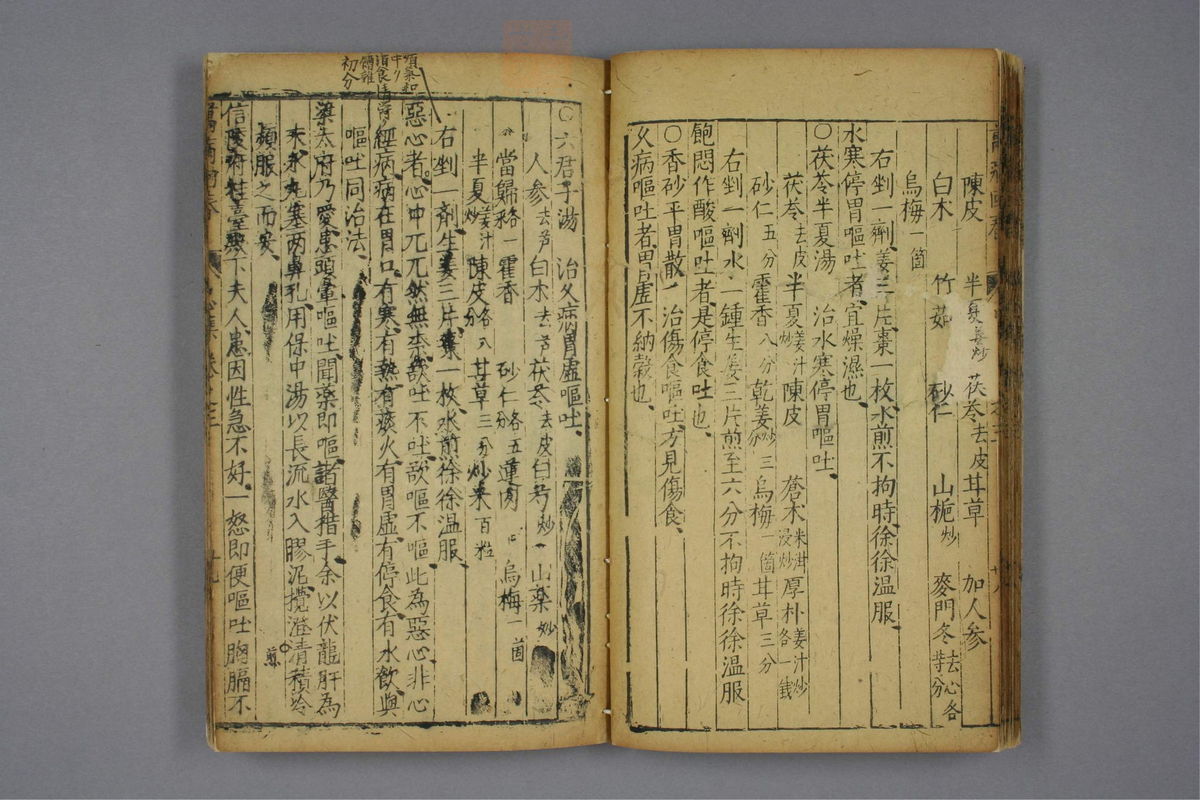 陳皮 半夏姜炒 茯苓去皮 甘草 加人參
白木 竹茹 砂仁 山梔炒 麥門冬去心各等分
烏梅一箇
右剉一劑姜三片棗一枚水煎不拘時徐徐温服
水寒停胃嘔吐者宜燥濕也
○茯苓半夏湯 治水寒停胃嘔吐
茯苓去皮 半夏姜汁炒 陳皮 蒼木米泔浸炒 厚朴姜汁炒各一錢
砂仁五分 霍香八分 乾姜炒三分 烏梅一箇 甘草三分
右剉一劑水一鍾生姜三片煎至六分不拘時徐徐温服
飽悶作酸嘔吐者是停食吐也
○香砂平胃散 治傷食嘔吐方見傷食
久病嘔吐者胃虛不納穀也
○六君子湯 治久病胃虛嘔吐
人參去芦 白木去芦 茯苓去皮 白芍炒 山藥炒
當歸各一 霍香 砂仁各五分 蓮肉 烏梅一箇
半夏姜汁炒 陳皮各八分 甘草三分 炒米百粒
右剉一劑生姜三片棗一枚水煎徐徐温服
惡心者心中兀兀然無柰欲吐不吐欲嘔不嘔此為惡心非心
經病病在胃口有寒有熱有痰火有胃虛有停食有水飲與
嘔吐同治法
梁太府乃愛患頭暈嘔吐聞藥即嘔諸醫措手余以伏龍肝為
末水丸塞兩鼻孔用保中湯以長流水入膠泥攪澄清積冷
煎
頻服之而安
信陵府桂臺殿下夫人患因性急不好一怒即便嘔吐胸膈不
初分